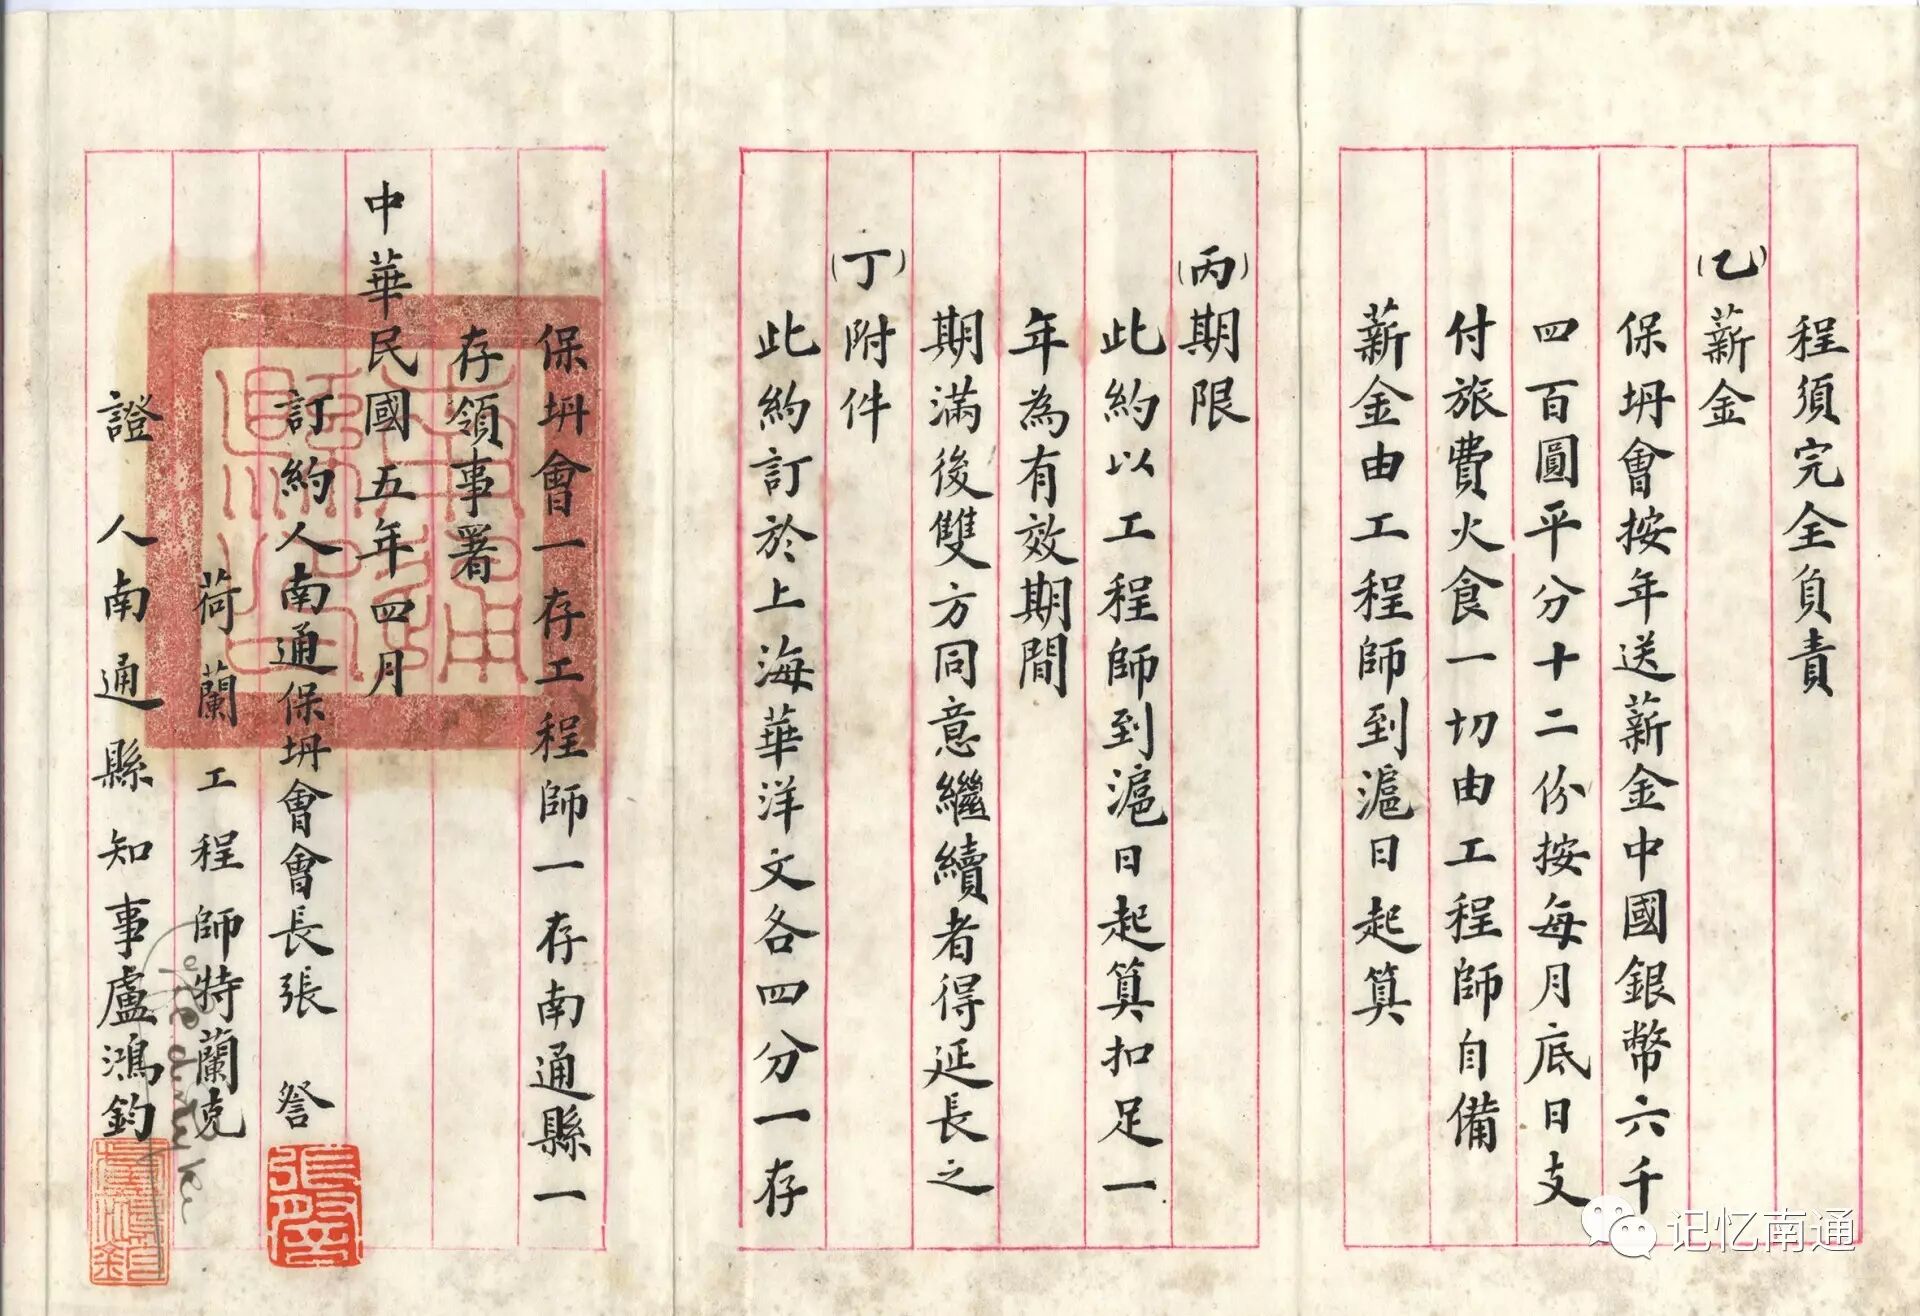 程須完全負責
(乙)薪金
保坍會按年送薪金中國銀幣六千
四百圓平分十二份按每月底日支
付旅費火食一切由工程師自備
薪金由工程師到滬日起算
(丙)期限
此約以工程師到滬日起算扣足一
年為有效期間
期滿後雙方同意繼續者得延長之
(丁)附件
此約訂於上海華洋文各四分一存
保坍會一存工程師一存南通縣一
存領事署
中華民國五年四月
訂約人南通保坍會會長張詧
荷蘭工程師特蘭克
證人南通縣知事盧鴻鈞
记忆南通